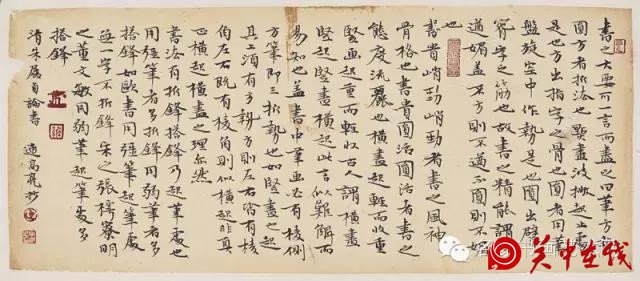 書之大要可一言而盡之曰筆方勢
圓方者折法也點畫波撇起止處
是也方出指字之骨也圓者用筆
盤旋空中作勢是也圓出臂
腕字之筋也故書之精能謂
遒媚蓋不方則不遒不圓則不媚
也
書貴峭勁峭勁者書之風神
骨格也書貴圓活圓活者書之
態度流麗也橫畫起輕而收重
豎畫起重而輕收古人謂橫畫
豎起豎畫橫起此言似難解而
易知也蓋書中筆畫必有棱側
方筆即三折勢也如豎畫之起
其上須有方勢方則左右皆有棱
角左右既有棱角則似橫起非真
正橫起橫畫之理亦然
書法有折鋒搭鋒乃起筆處也
用強筆者多折鋒用弱筆者多
搭鋒如歐書用強筆起筆處
每一字不折鋒宋之張樗寮明
之董文敏用弱筆起筆處多
搭鋒
清朱履貞論書
关中在线